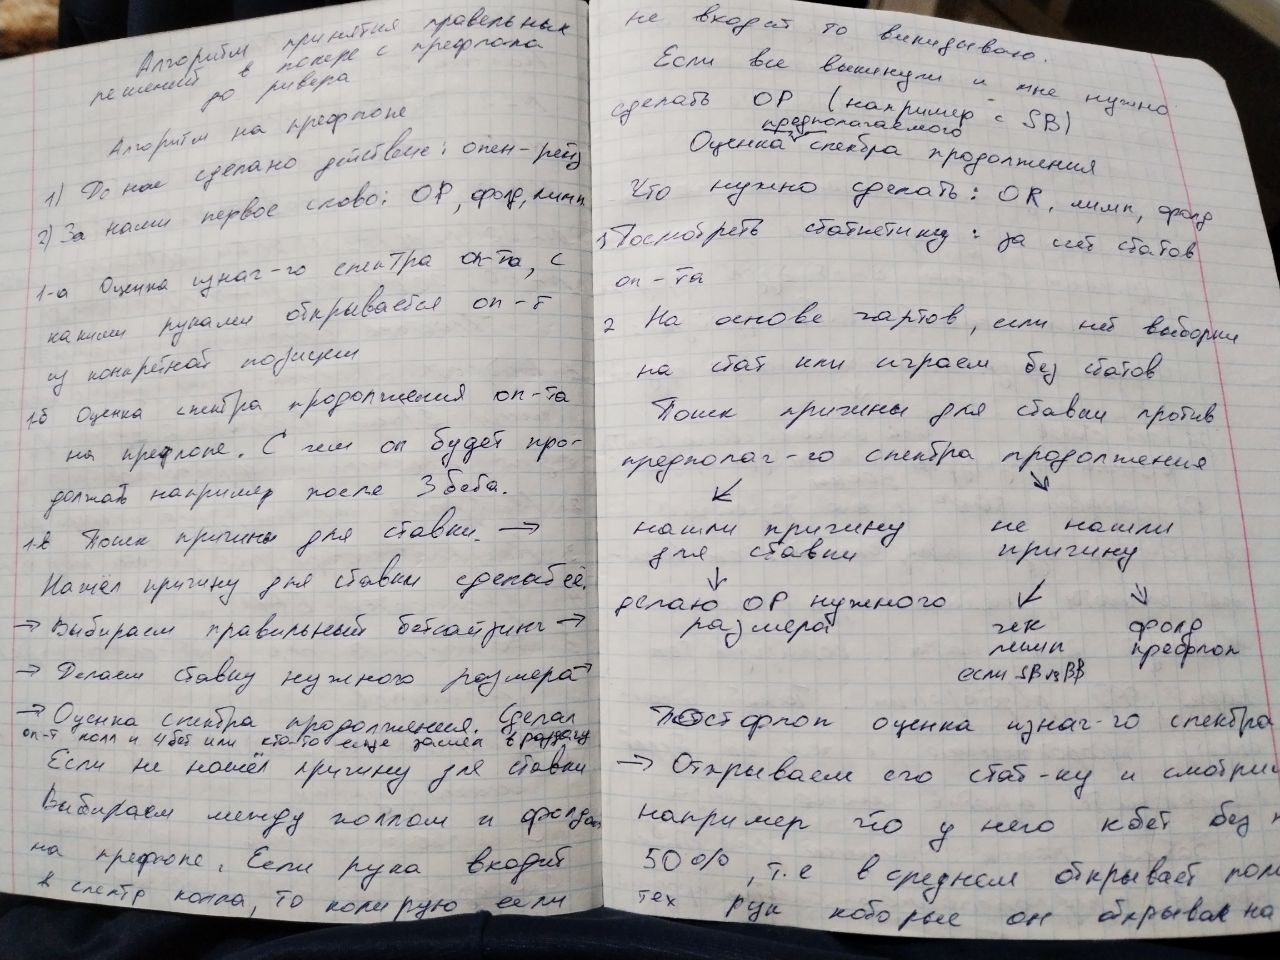 Алгоритм принятия правельных
решений в покере с префлопа
до ривера
Алгоритм на префлопе
1) До нас сделано действие: опен-рейз
2) За нами первое слово: ОР, фолд, лимп
1-а Оценка изнач-го спектра оп-та, с
какими руками открывается оп-т
из конкретной позиции
1-б Оценка спектра продолжения оп-та
на префлопе. С чем он будет про-
должать например после 3бета.
1-в Поиск причины для ставки. →
Нашёл причину для ставки сделаб её.
→ Выбираем правильный бетсайзинг →
→ Делаем ставку нужного размера →
→ Оценка спектра продолжения. Сделал
оп-т колл и 4бет или кто-то ещё зашёл в раздачу
Если не нашёл причину для ставки
Выбираем между коллом и фолдом
на префлопе. Если рука входит
в спектр колла, то колирую если
не входит то выкидываю.
Если все выкинули и мне нужно
сделать ОР (например с SB)
предполагаемого
Оценка спектра продолжения
Что нужно сделать: OR, лимп, фолд
1 Посмотреть статистику: за счёт статов
оп-та
2 На основе чартов, если нет выборки
на стат или играем без статов
Поиск причины для ставки против
предполаг-го спектра продолжения
↙ ↘
нашли причину не нашли
для ставки причину
↓ ↙ ↘
делаю ОР нужного чек фолд
размера лимп префлоп
если SB vs BB
Постфлоп оценка изнач-го спектра
→ Открываем его стат-ку и смотрим
например что у него кбет без
50%, т.е в среднем открывает
тех рук которые он открывал на